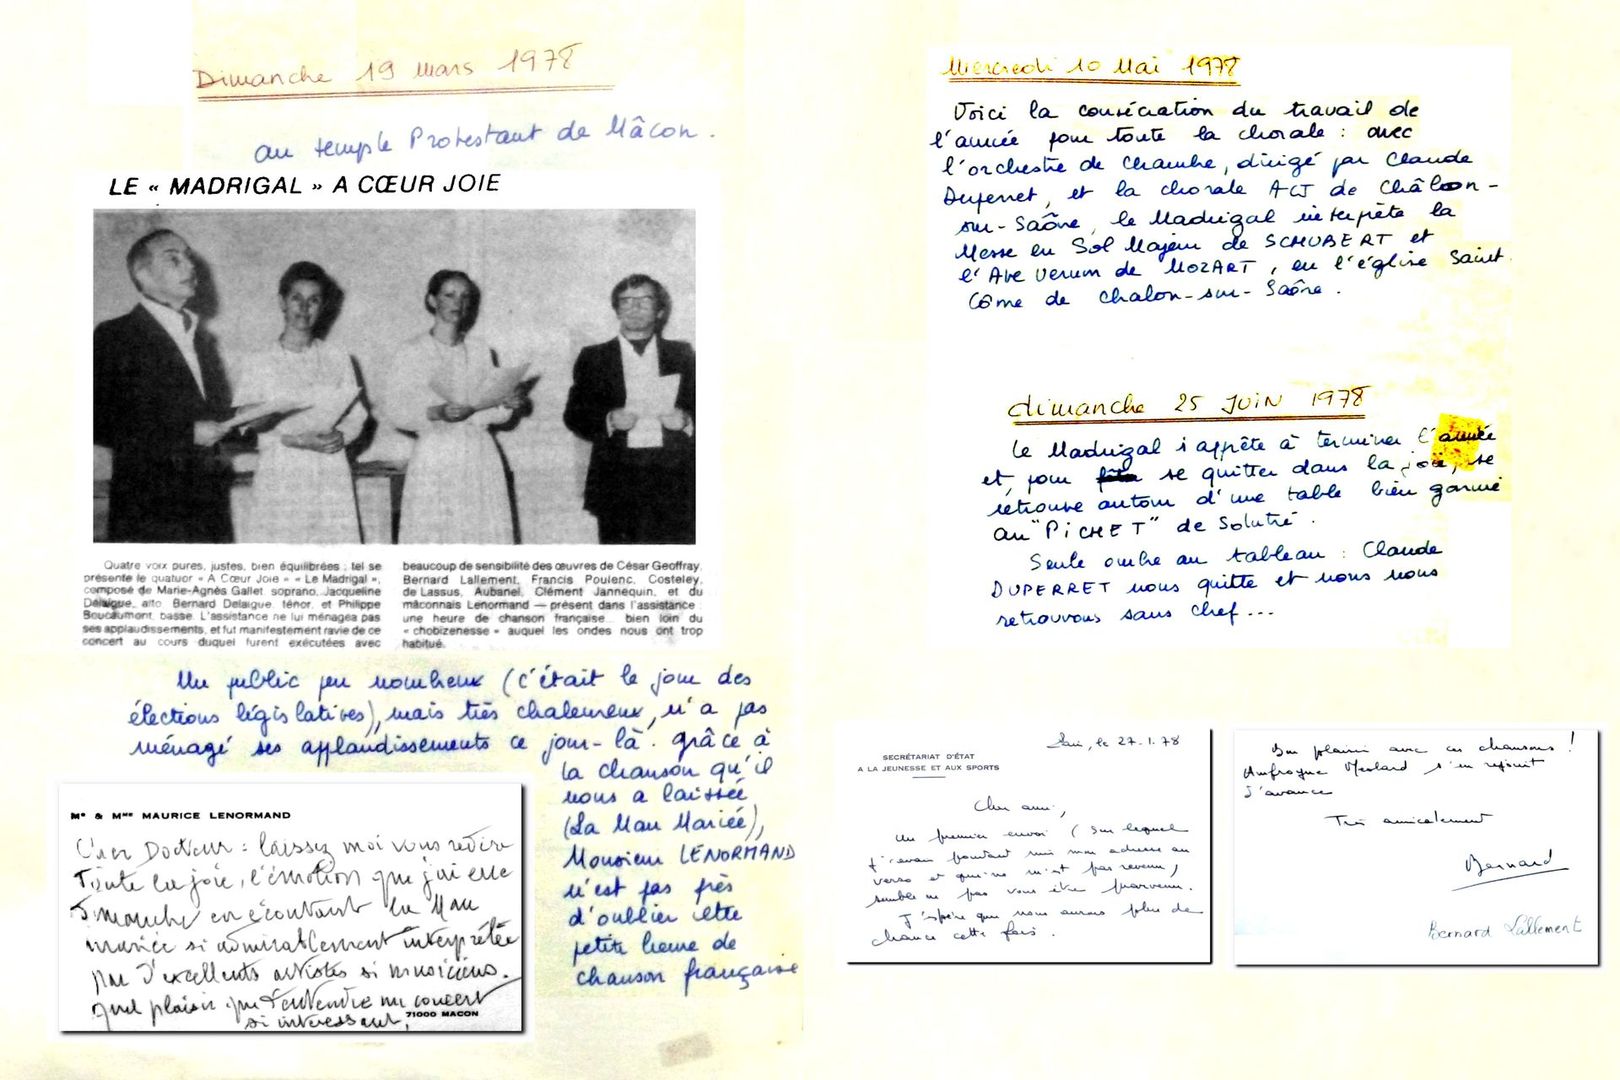 Dimanche 19 mars 1978
au temple Protestant de Mâcon.
LE « MADRIGAL » A CŒUR JOIE
Quatre voix pures, justes, bien équilibrées : tel se
présente le quatuor « A Cœur Joie » « Le Madrigal »,
composé de Marie-Agnès Gallet soprano, Jacqueline
Delaigue, alto Bernard Delaigue, ténor, et Philippe
Boucaumont, basse. L'assistance ne lui ménagea pas
ses applaudissements, et fut manifestement ravie de ce
concert au cours duquel furent exécutées avec
beaucoup de sensibilité des œuvres de César Geoffray,
Bernard Lallement, Francis Poulenc, Costeley,
de Lassus, Aubanel, Clément Jannequin, et du
mâconnais Lenormand — présent dans l'assistance :
une heure de chanson française... bien loin du
« chobizenesse » auquel les ondes nous ont trop
habitué.
Un public peu nombreux (c'était le jour des
élections législatives), mais très chaleureux, n'a pas
ménagé ses applaudissements ce jour-là. grâce à
la chanson qu'il
nous a laissée
(La Mau Mariée),
Monsieur LENORMAND
n'est pas près
d'oublier cette
petite heure de
chanson française
Mr & MME MAURICE LENORMAND
Cher Docteur : laissez moi vous redire
Toute la joie, l'émotion que j'ai eue
Dimanche en écoutant la Mau
mariée si admirablement interprétée
par d'excellents artistes si musiciens.
quel plaisir que d'entendre un concert
si intéressant,
71000 MACON
Mercredi 10 Mai 1978
Voici la consécration du travail de
l'année pour toute la chorale : avec
l'orchestre de chambre, dirigé par Claude
Duperret, et la chorale ACJ de Châlon-
sur-Saône, le Madrigal interprète la
Messe en Sol Majeur de SCHUBERT et
l'Ave verum de MOZART, en l'église Saint
Côme de Chalon-sur-Saône.
dimanche 25 JUIN 1978
Le Madrigal s'apprête à terminer l'année
et, pour se quitter dans la joie, se
retrouve autour d'une table bien garnie
au "PICHET" de Solutré.
Seule ombre au tableau : Claude
DUPERRET nous quitte et nous nous
retrouvons sans chef...
SECRÉTARIAT D'ÉTAT
A LA JEUNESSE ET AUX SPORTS
le 27.1.78
Cher ami,
Un premier envoi (sur lequel
j'avais pourtant mis mon adresse au
verso et qui ne m'est pas revenu)
semble ne pas vous être parvenu.
J'espère que nous aurons plus de
chance cette fois.
Bon plaisir avec ces chansons !
s'en réjouit
d'avance
Très amicalement
Bernard
Bernard Lallement